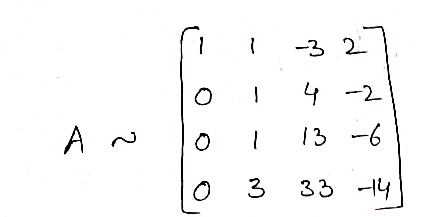 1 1 -3 2
0 1 4 -2
A ~ 0 1 13 -6
0 3 33 -14